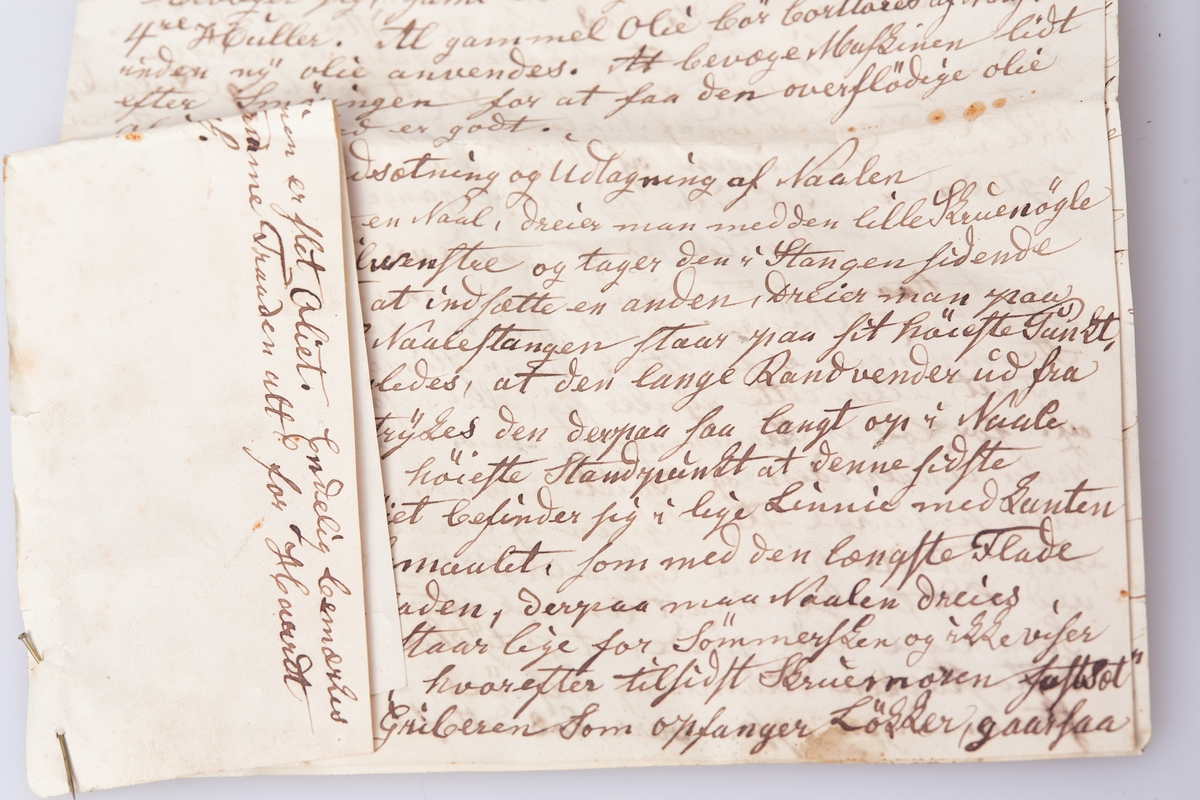 4re Müller. Al gammel Olie bör borttöres
inden ny olie anvendes. At bevæge Maskinen lidt
efter Smöringen for at faa den overflödige olie
er godt.
dsætning og Udtagning af Naalen
en Naal, dreier man med den lille Skruenögle
venstre og tager den i Stangen sidende
at indsætte en anden, dreier man paa
Naalestangen staar paa sit höieste Punkt,
ledes, at den lange Rand vender ud fra
trykes den derpaa saa langt op i Naale
höieste Standpunkt at denne sidste
iet befinder sig i lige Linnie med Kanten
maalet, som med den længste Flade
aden, derpaa maa Naalen dreies
staar lige for Sömmersken og ikke viser
, hvorefter tilsidst Skruemoren fastsæt"
Griberen som opfanger Lökker, gaar saa
nen er slet Oliet. Endelig bemærkes
Traaden att for Haardt